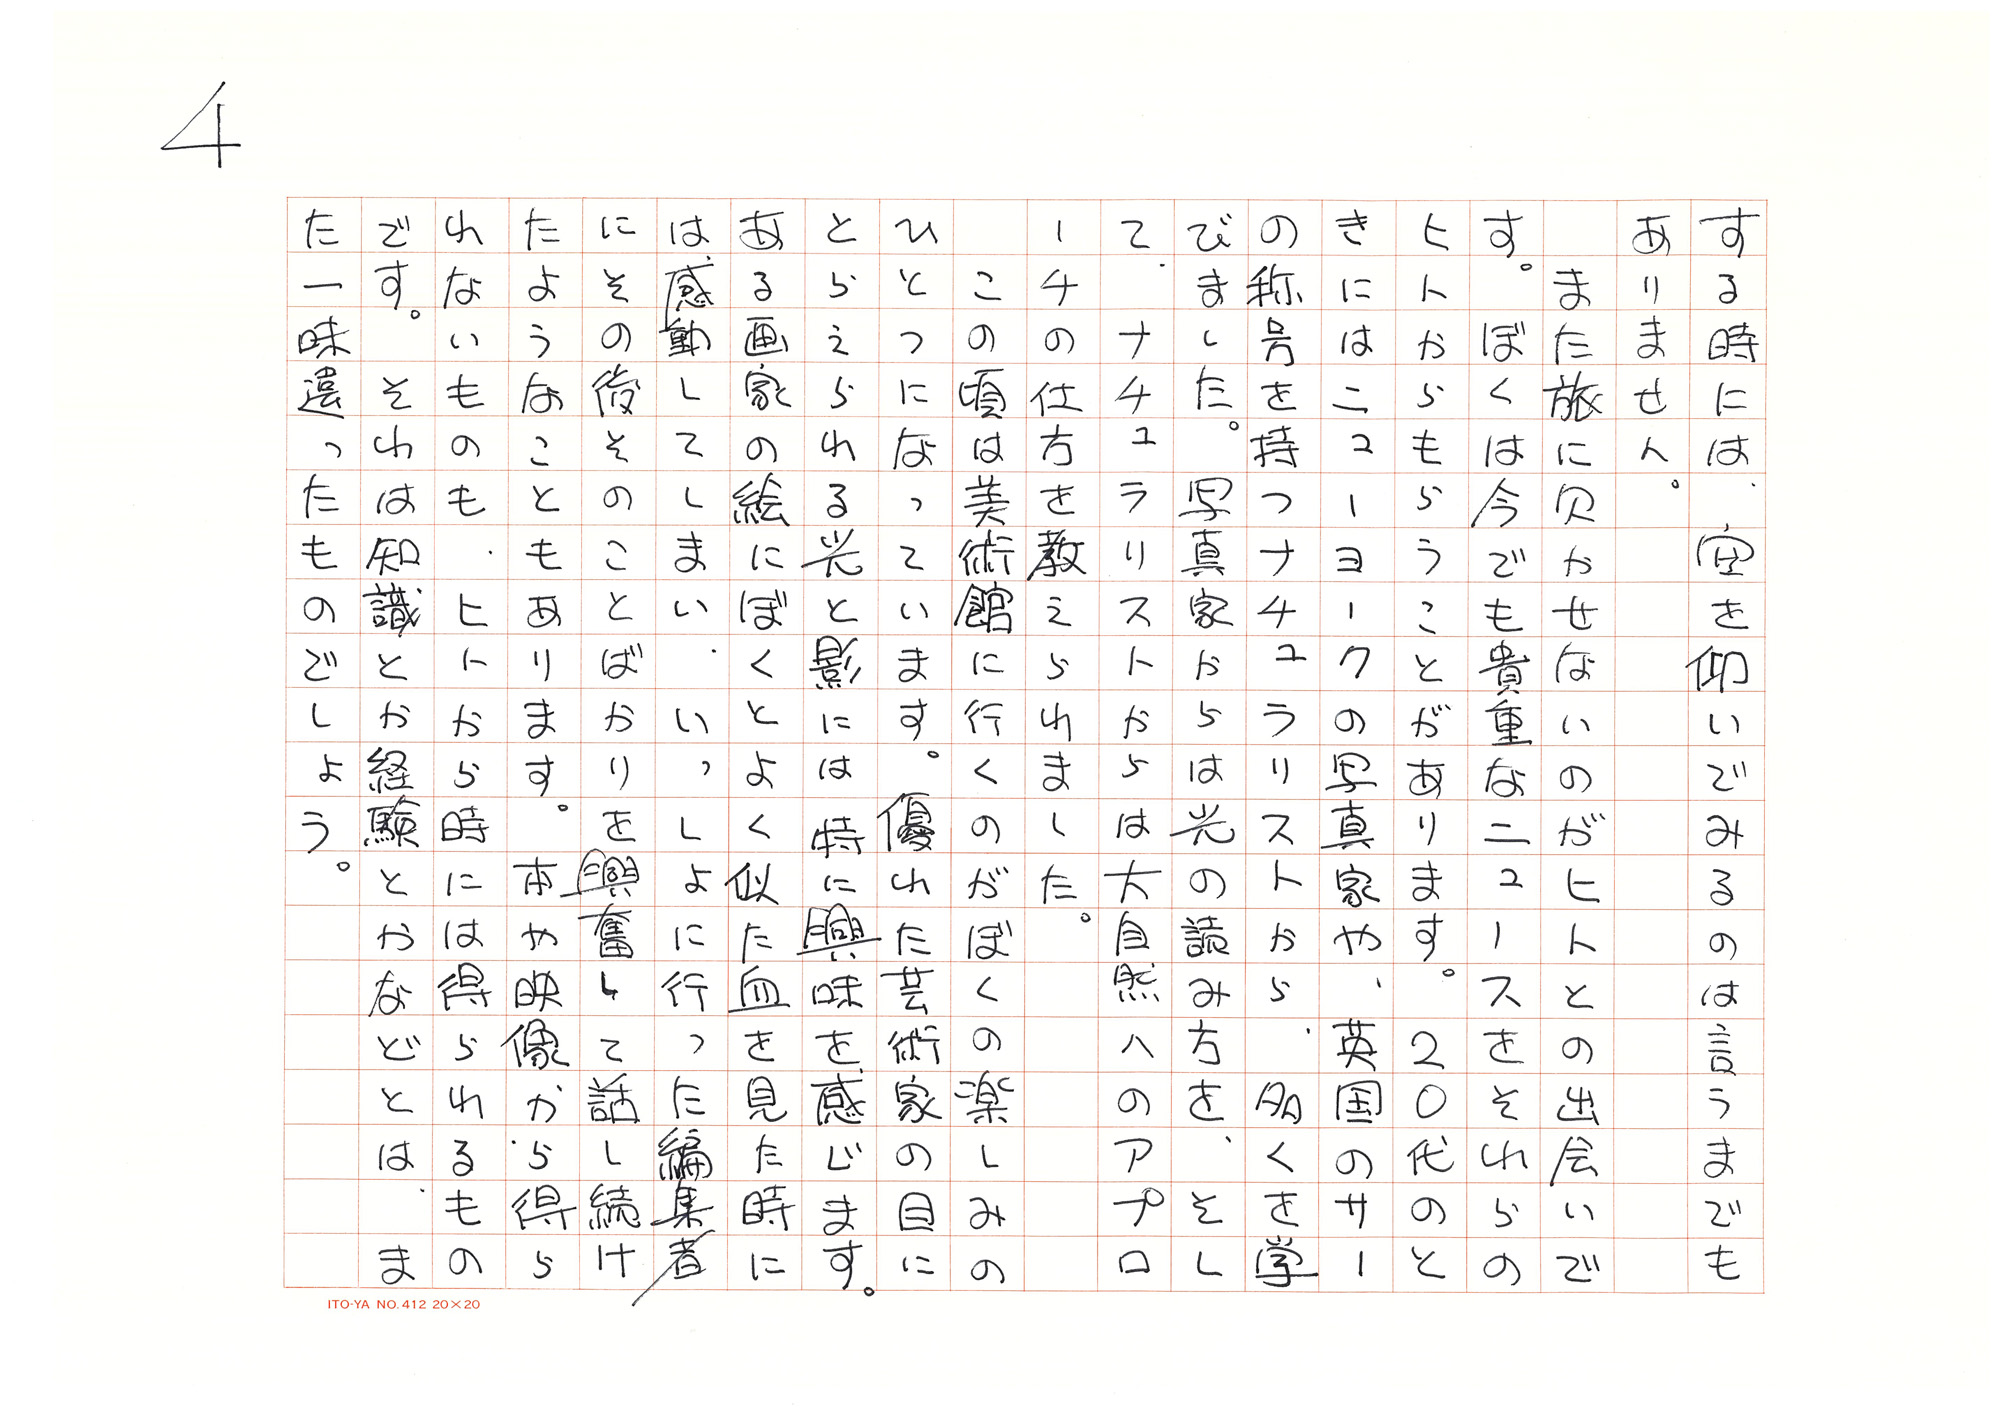 4
する時には、空を仰いでみるのは言うまでも
ありません。
また旅に欠かせないのがヒトとの出会いで
す。ぼくは今でも貴重なニュースをそれらの
ヒトからもらうことがあります。20代のと
きにはニューヨークの写真家や、英国のサー
の称号を持つナチュラリストから、多くを学
びました。写真家からは光の読み方を、そし
て、ナチュラリストからは大自然へのアプロ
ーチの仕方を教えられました。
この頃は美術館に行くのがぼくの楽しみの
ひとつになっています。優れた芸術家の目に
とらえられる光と影には特に興味を感じます。
ある画家の絵にぼくとよく似た血を見た時に
は感動してしまい、いっしょに行った編集者
にその後そのことばかりを興奮して話し続け
たようなこともあります。本や映像から得ら
れないものも、ヒトから時には得られるもの
です。それは知識とか経験とかなどとは、ま
た一味違ったものでしょう。
ITO-YA NO. 412 20×20